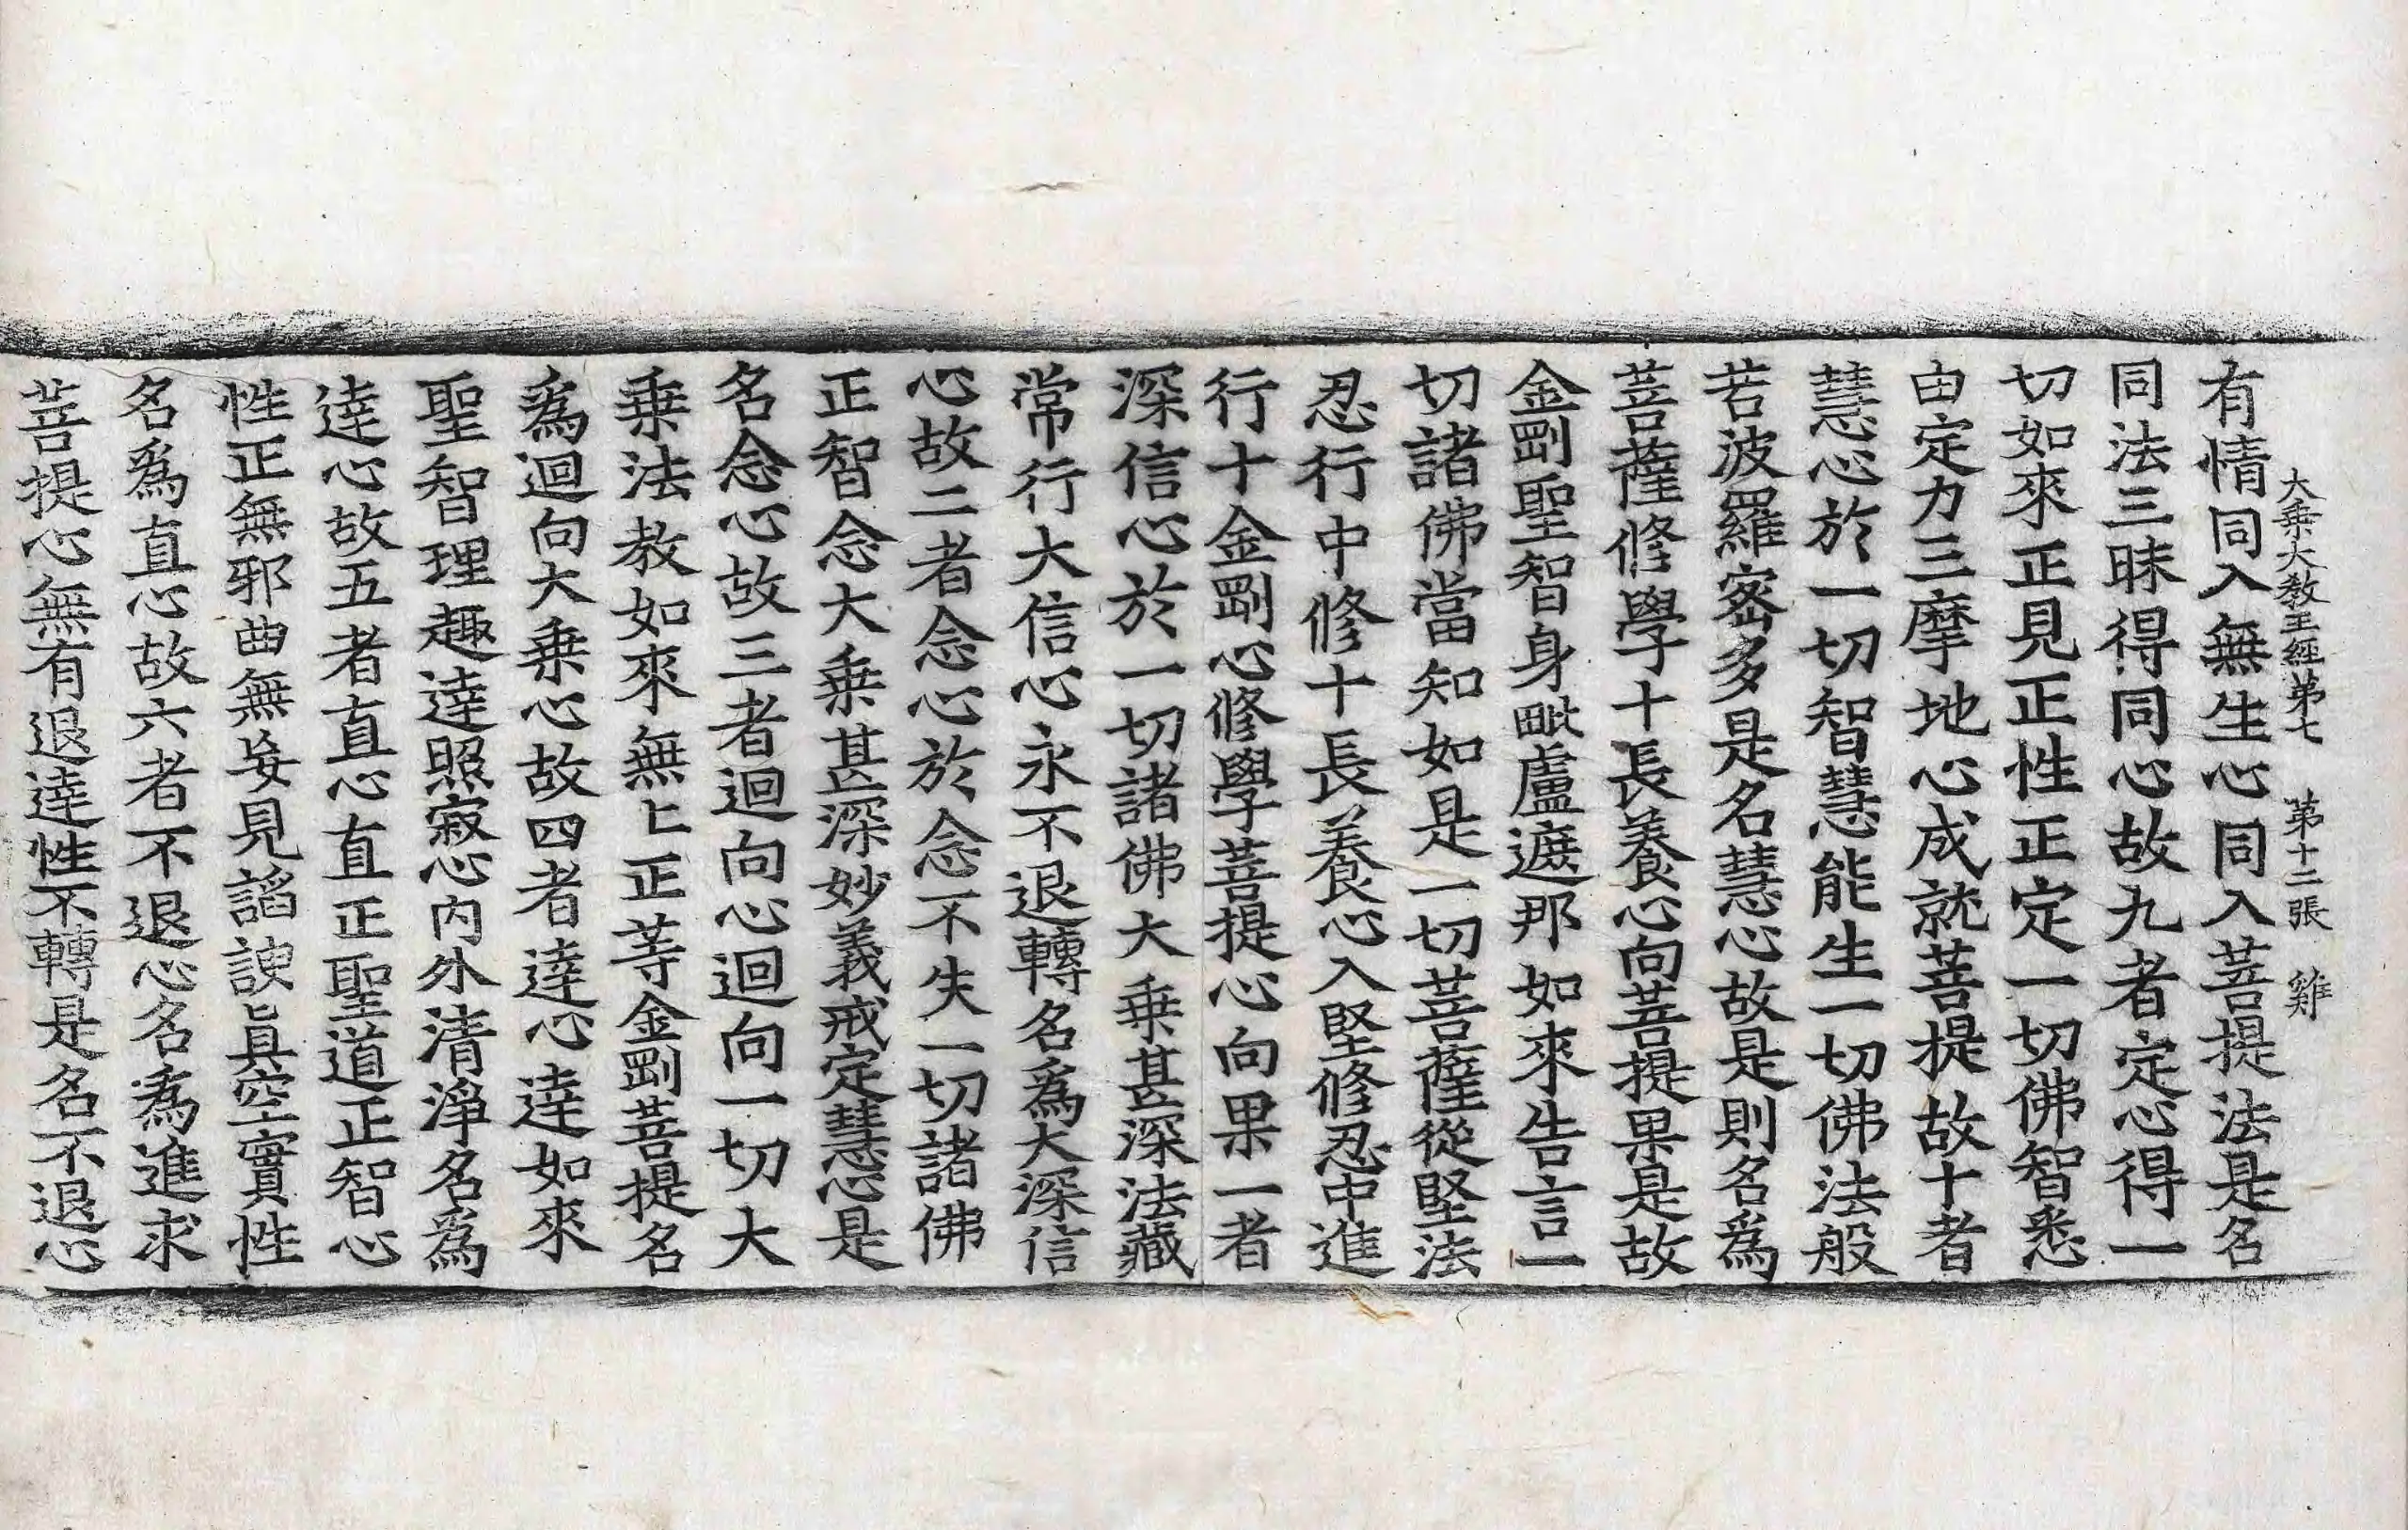 大乗大教王經第七　第十二張　雞
有情同入無生心同入菩提法是名
同法三昧得同心故九者定心得一
切如來正見正性正定一切佛智悉
由定力三摩地心成就菩提故十者
慧心於一切智慧能生一切佛法般
若波羅蜜多是名慧心故是則名爲
菩薩修學十長養心向菩提果是故
金剛聖智身毗盧遮那如來告言一
切諸佛當知如是一切菩薩從堅法
忍行中修十長養心入堅修忍中進
行十金剛心修學菩提心向果一者
深信心於一切諸佛大乗甚深法藏
常行大信心永不退轉名爲大深信
心故二者念心於念不失一切諸佛
正智念大乗甚深妙義戒定慧心是
名念心故三者迴向心迴向一切大
乗法教如來無上正等金剛菩提名
爲迴向大乗心故四者達心達如來
聖智理趣達照寂心内外清淨名爲
達心故五者直心直正聖道正智心
性正無邪曲無妄見謟諛眞空實性
名爲直心故六者不退心名爲進求
菩提心無有退達性不轉是名不退心